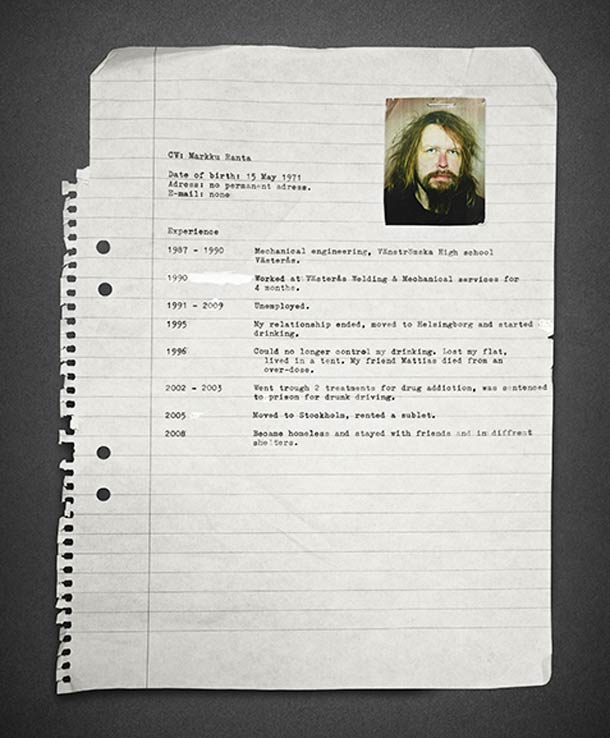 CV: Markku Ranta
Date of birth: 15 May 1971
Adress: no permanent adress.
E-mail: none
Experience
1987 - 1990 Mechanical engineering, Vänströmska High school
Västerås.
1990 Worked at Västerås Welding & Mechanical services for
4 months.
1991 - 2009 Unemployed.
1995 My relationship ended, moved to Helsingborg and started
drinking.
1996 Could no longer control my drinking. Lost my flat,
lived in a tent. My friend Mattias died from an
over-dose.
2002 - 2003 Went trough 2 treatments for drug addiction, was sentenced
to prison for drunk driving.
2005 Moved to Stockholm, rented a sublet.
2008 Became homeless and stayed with friends and in diffrent
shelters.